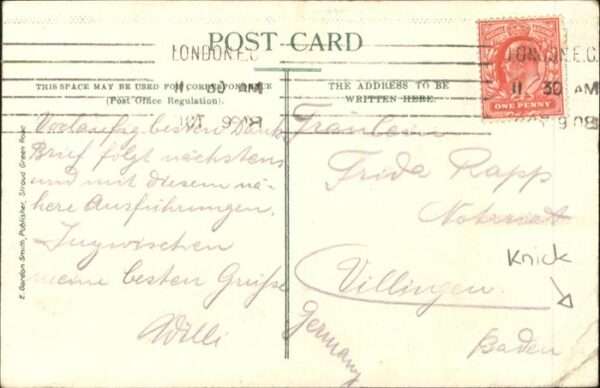 POST-CARD
LONDON.E.C.
11 30 AM
OCT 9 08
LONDON.E.C.
11 30 AM
9 08
ONE PENNY
THIS SPACE MAY BE USED FOR CORRESPONDENCE
(Post Office Regulation).
THE ADDRESS TO BE
WRITTEN HERE.
E. Gordon Smith, Publisher, Stroud Green Road
Vorläufig besten Dank
Brief folgt nächstens
und mit diesem nä-
here Ausführungen.
Inzwischen
meine besten Grüße
Willi
Fräulein
Frida Rapp
Notariat
Villingen.
Baden
Germany
Knick